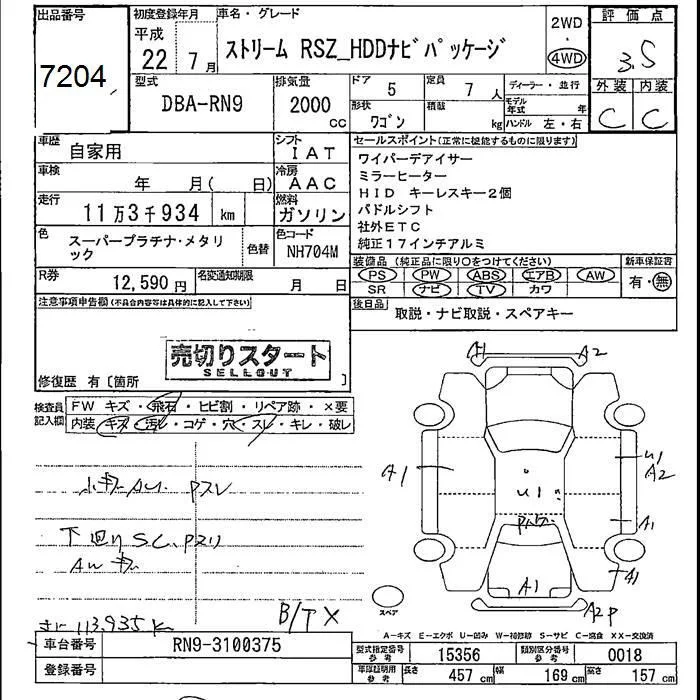 出品番号
7204
初度登録年月
平成
22 7月
車名・グレード
ストリーム RSZ_HDDナビパッケージ
2WD
・
4WD
評価点
3.5
外装 内装
C C
型式
DBA-RN9
排気量
2000
cc
ドア
5
定員
7人
形状
ワゴン
積載
kg
ディーラー・並行
モデル年式 年
ハンドル 左・右
車歴
自家用
シフト
IAT
車検
年 月( 日)
冷房
AAC
走行
11万3千934 km
燃料
ガソリン
色
スーパープラチナ・メタリック
色替
色コード
NH704M
R券
12,590円
名変通知期限
月 日
セールスポイント(正常に機能するものに限ります)
ワイパーデアイサー
ミラーヒーター
HID キーレスキー2個
パドルシフト
社外ETC
純正17インチアルミ
装備品(純正品に限り○をつけてください)
PS PW ABS エアB AW
SR ナビ TV カワ
新車保証書
有・無
後日品
取説・ナビ取説・スペアキー
注意事項申告欄(不具合内容等は具体的に記入して下さい)
売切りスタート
SELLOUT
修復歴 有〔箇所 〕
検査員記入欄
FW キズ・飛石・ヒビ割・リペア跡・×要
内装 キズ・汚レ・コゲ・穴・スレ・キレ・破レ
下廻りSC、
113,935k
B/TX
A1 A2
A1
U1
U1
A2
A1
A1
A1
A2P
スペア
A-キズ E-エクボ U-凹み W-補修跡 S-サビ C-腐食 XX-交換済
車台番号
RN9-3100375
登録番号
型式指定番号
参考
15356
類別区分番号
参考
0018
車庫証明用
参考
長さ 457 cm
幅 169 cm
高さ 157 cm